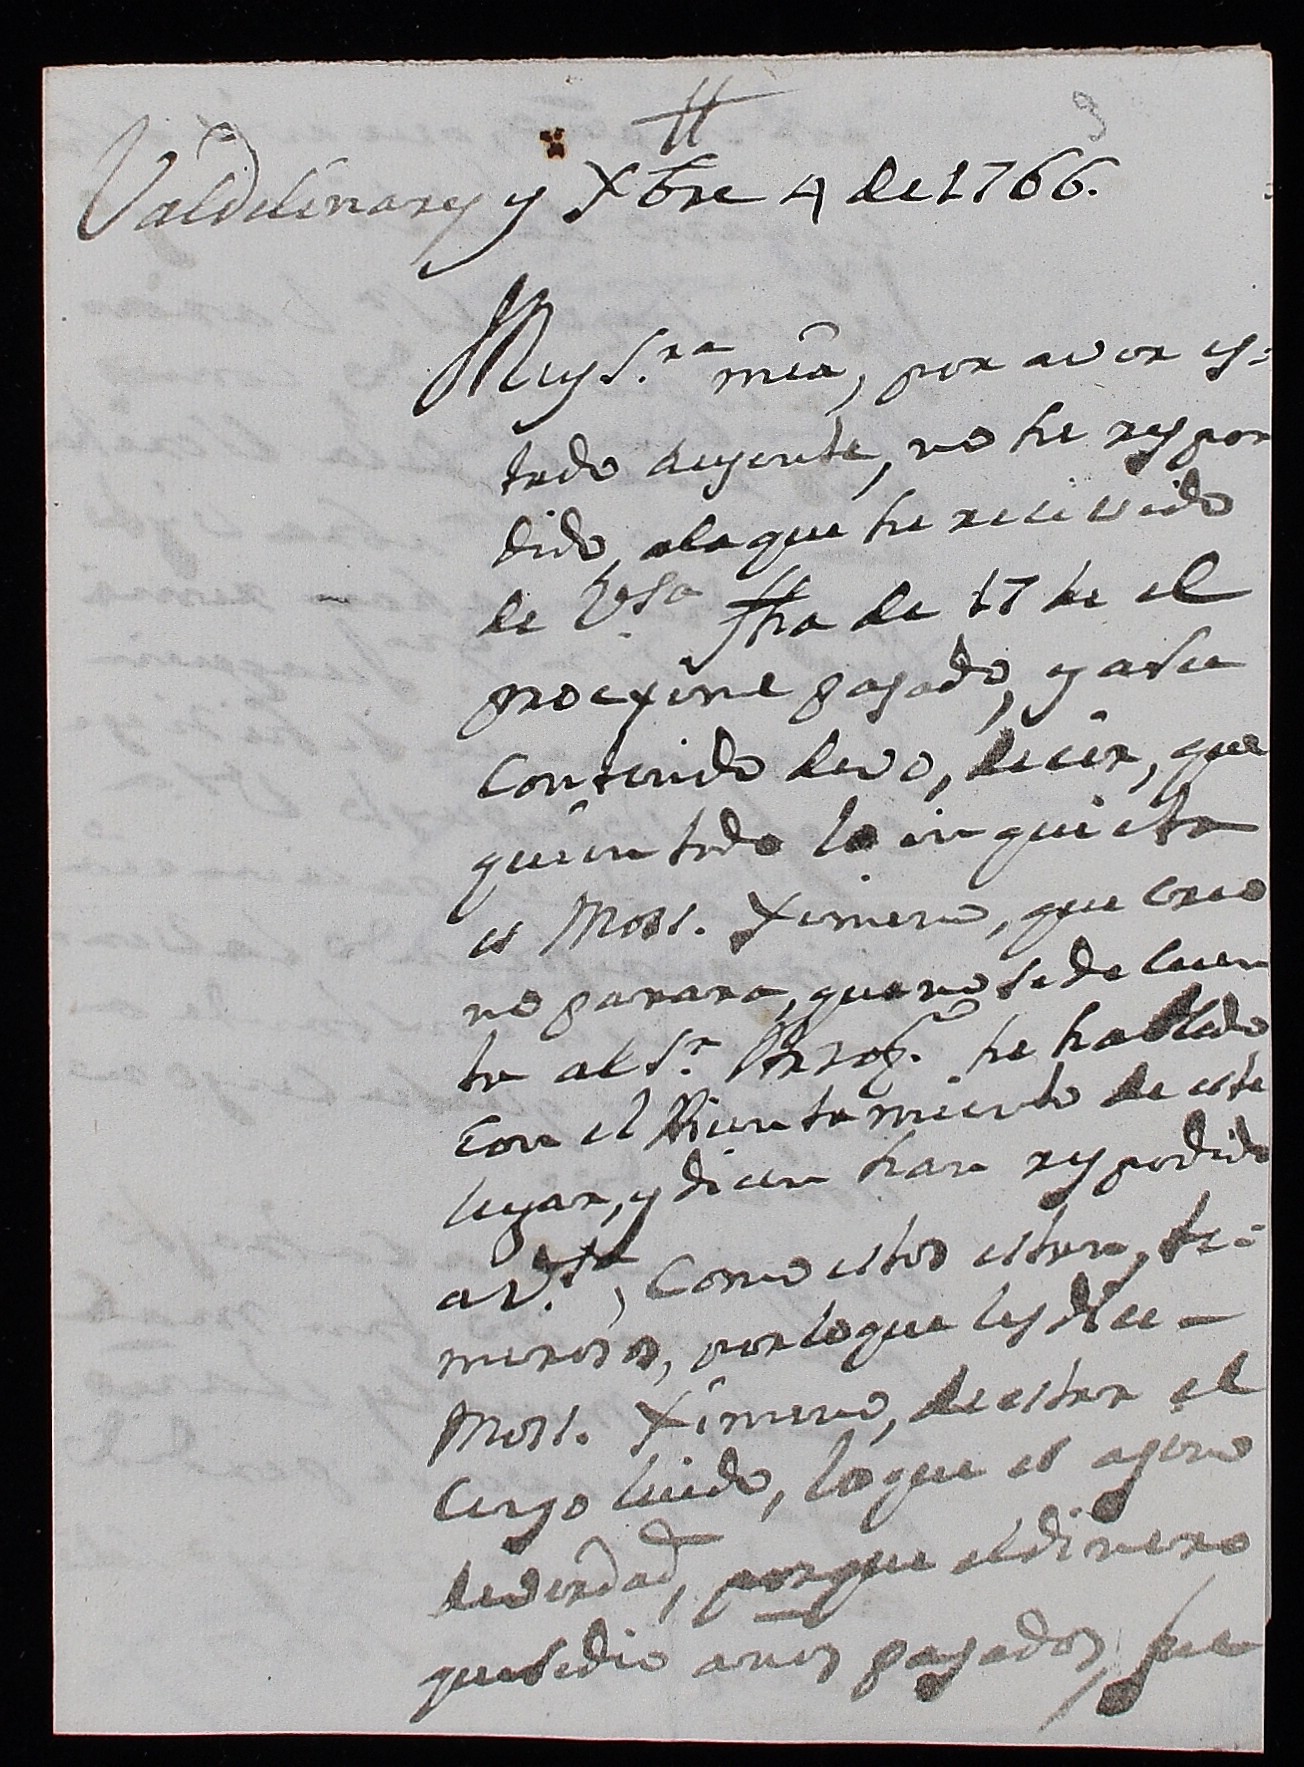 9
Valdelinares y Xbre 4 de 1766.
Muy S.ra mia, por aver es=
tado ausente, no he respon
dido, ala que he recivido
de Vsa. fha de 17 de el
procximе pasado, y asu
Contenido devo, decir, que
quien todo lo inquieta
es Moss. Ximeno, que creo
no parara, que no se de cuen
ta al S.r Arzob.o he hablado
con el Aiuntamiento de este
lugar, y dicen han respodido
a V.sa, Como estos estan, te=
merosos, por lo que les dice -
Moss. Ximeno, de estar el
Cargo luido, lo que es ageno
de verdad, porque el dinero
que se dio años pasados, fue